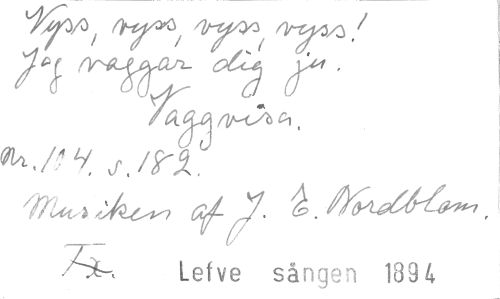 Vyss, vyss, vyss, vyss!
Jag vaggar dig ju.
Vaggvisa.
Nr. 104. s. 182.
Musiken af J. E. Nordblom.
Fx. Lefve sången 1894